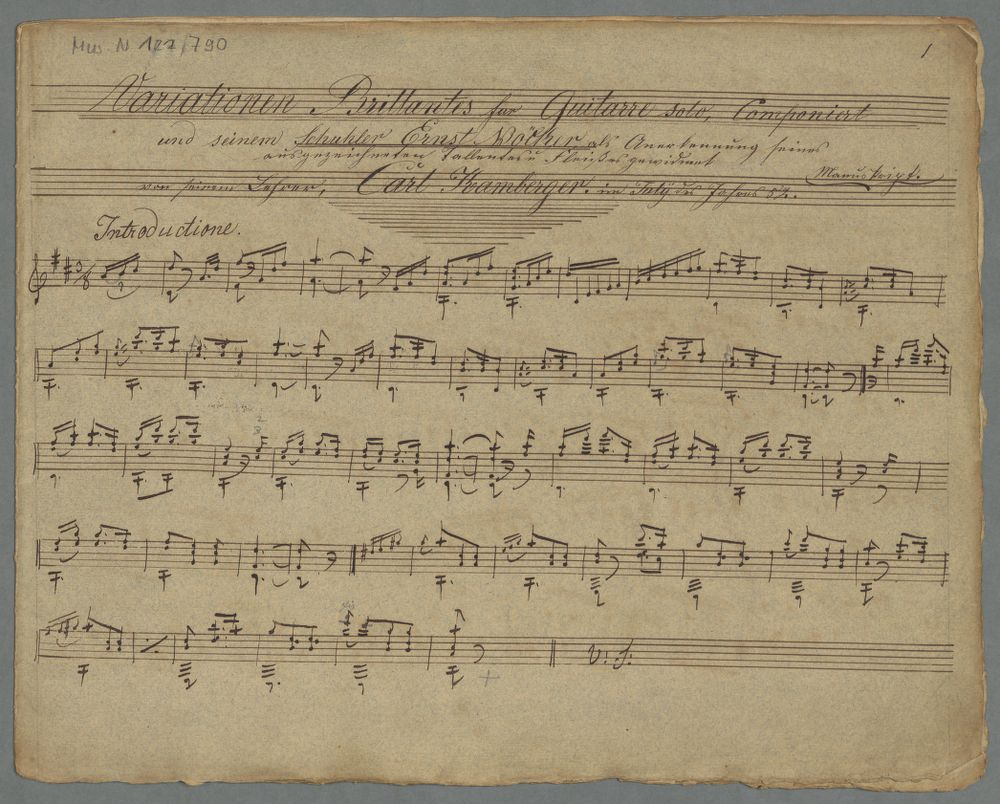 Mus. N 122/790
1
Variationen Brillantes für Guitarre solo, Componiert
und seinem Schuhler Ernst Völker als Anerkennung seines
ausgezeichneten Tallentes u Fleißes gewidmet
Manuskript.
von seinem Lehrer, Carl Hamberger. im July des Jahres 52.
Introductione.
3
V: S: